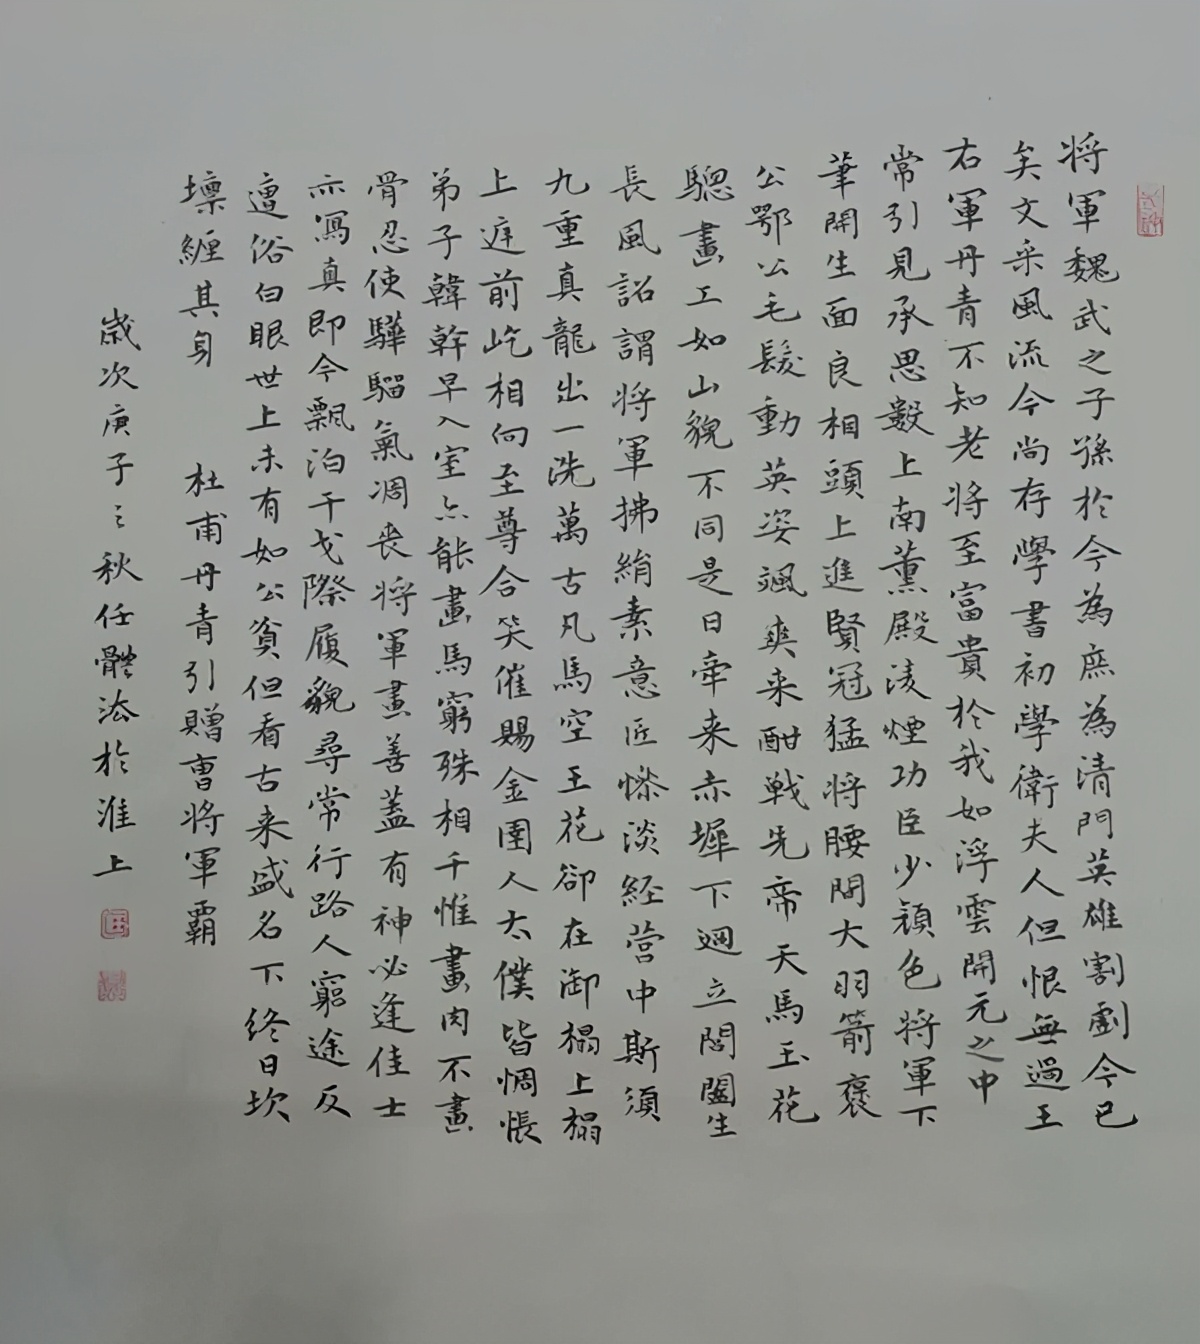 将軍魏武之子孫於今為庶為清門英雄割劇今已
矣文采風流今尚存學書初學衛夫人但恨無過王
右軍丹青不知老将至富貴於我如浮雲開元之中
常引見承思數上南薰殿淩煙功臣少顔色将軍下
筆開生面良相頭上進賢冠猛将腰間大羽箭褒
公鄂公毛髮動英姿颯爽来酣戦先帝天馬玉花
驄畫工如山貌不同是日牽来赤墀下迥立閶闔生
長風詔謂将軍拂絹素意匠惨淡経营中斯須
九重真龍出一洗萬古凡馬空玉花卻在御榻上榻
上庭前屹相向至尊含笑催賜金圉人太僕皆惆悵
弟子韓幹早入室亦能畫馬窮殊相千惟畫肉不畫
骨忍使驊騮氣凋喪将軍畫善蓋有神必逢佳士
亦寫真即今飄泊干戈際履貌尋常行路人窮途反
遭俗白眼世上未有如公貧但看古来盛名下终日坎
壈纏其身 杜甫丹青引贈曹将軍霸
歲次庚子之秋任體法於淮上